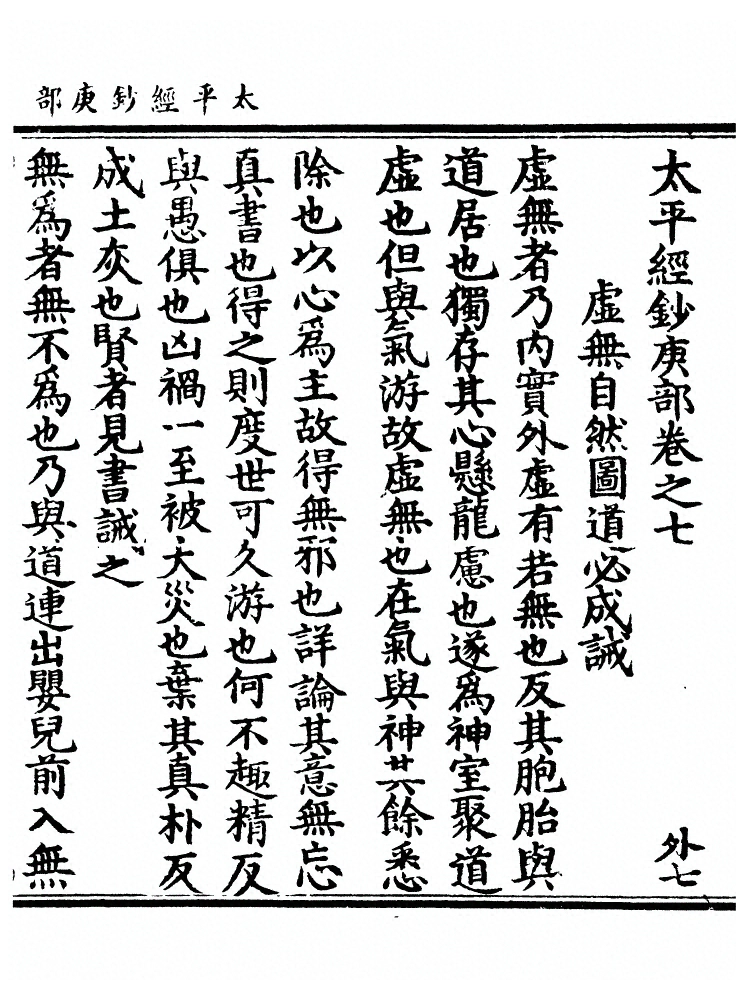 太平經鈔庚部
太平經鈔庚部卷之七
外七
虛無自然圖道必成誡
虛無者乃內實外虛有若無也反其胞胎與
道居也獨存其心懸龍慮也遂為神室聚道
虛也但與氣游故虛無也在氣與神其餘悉
除也以心為主故得無邪也詳論其意無忘
真書也得之則度世可久游也何不趣精反
與愚俱也凶禍一至被大災也棄其真朴反
成土灰也賢者見書誡之
無為者無不為也乃與道連出嬰兒前入無